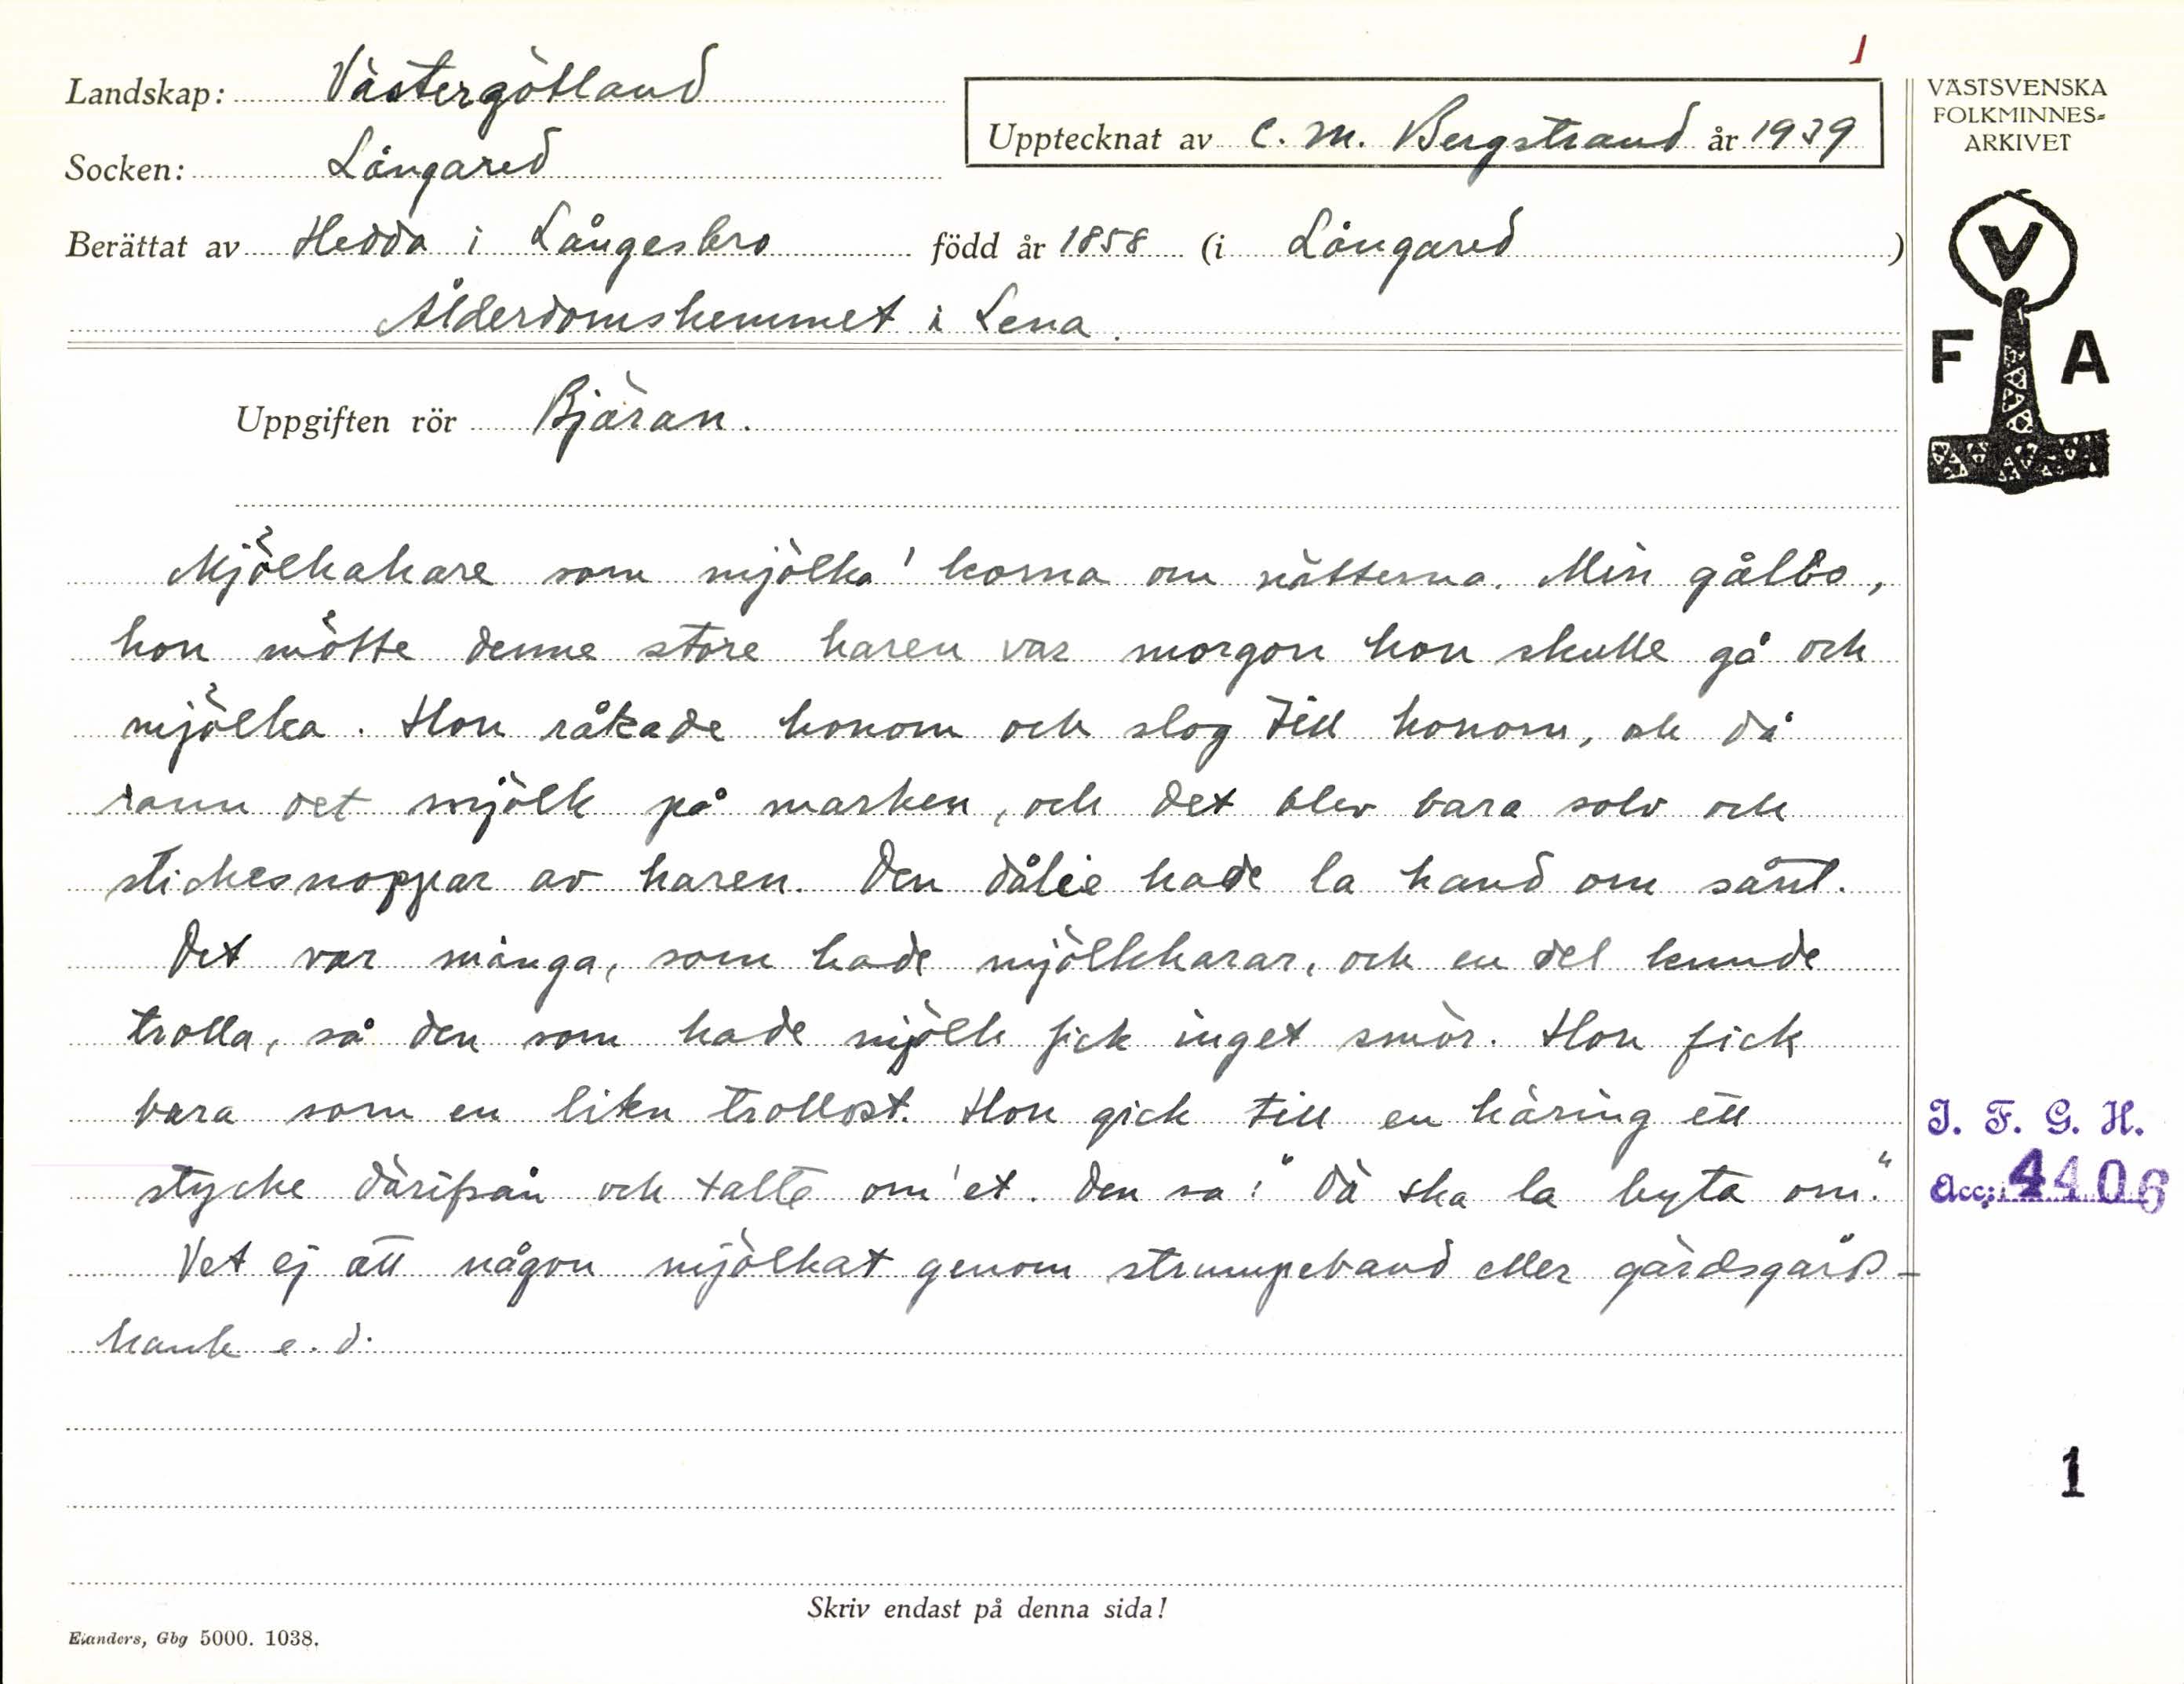 1
Landskap: Västergötland
Upptecknat av C. M. Bergstrand år 1939
Socken: Långared
Berättat av Hedda i Långesbro född år 1858 (i Långared)
Ålderdomshemmet i Lena.
Uppgiften rör Bjäran.
Mjölkahare som mjölka' korna om nätterna. Min gålbo,
hon mötte denne store haren var morgon hon skulle gå och
mjölka. Hon råkade honom och slog till honom, och då
rann det mjölk på marken, och det blev bara solv och
stickesnoppar av haren. Den dålie hade la hand om sånt.
Det var många, som hade mjölkharar, och en del kunde
trolla, så den som hade mjölk fick inget smör. Hon fick
bara som en liten trollost. Hon gick till en häring ett
stycke därifrån och talte om'et. Den sa: "Dä ska la byta om."
Vet ej att någon mjölkat genom strumpeband eller gärdsgårds-
hank e. d.
Skriv endast på denna sida!
Elanders, Gbg 5000. 1038.
VÄSTSVENSKA
FOLKMINNES=
ARKIVET
V
F A
I. F. G. H.
Acc: 4406
1